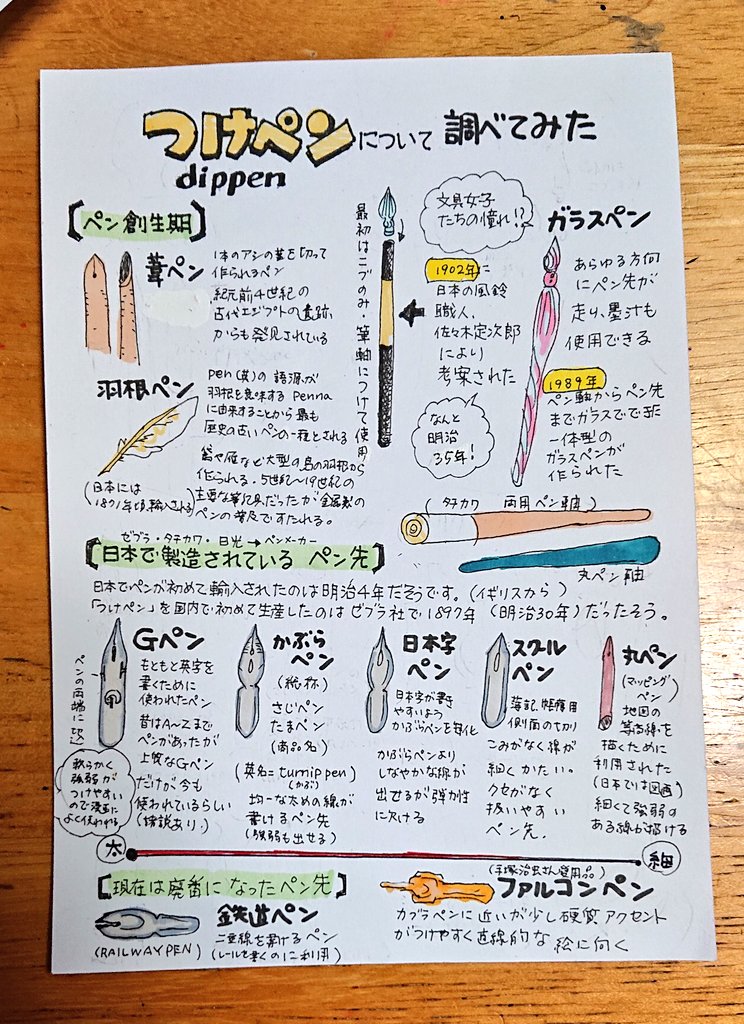 つけペンについて調べてみた
dippen
【ペン創生期】
葦ペン
1本のアシの茎を切って
作られるペン
紀元前4世紀の
古代エジプトの遺跡
からも発見されている
羽根ペン
pen(英)の語源が
羽根を意味するPenna
に由来することから最も
歴史の古いペンの一種とされる
(日本には
1871年頃輸入される)
や雁など大型の鳥の羽根から
作られる。5世紀〜19世紀の
主要な筆記具だったが金属製の
ペンの普及ですたれる。
最初はニブのみ・筆軸につけて使用
文具女子
たちの憧れ!?
1902年に
日本の風鈴
職人、
佐々木定次郎
により
考案された
なんと
明治
35年!
ガラスペン
あらゆる方向
にペン先が
走り、墨汁も
使用できる
1989年
ペン軸からペン先
までガラスでできた
一体型の
ガラスペンが
作られた
(タチカワ 両用ペン軸)
丸ペン軸
ゼブラ・タチカワ・日光→ペンメーカー
【日本で製造されているペン先】
日本でペンが初めて輸入されたのは明治4年だそうです。(イギリスから)
「つけペン」を国内で初めて生産したのはゼブラ社で1897年(明治30年)だったそう。
ペンの両端に
Gペン
もともと英字を
書くために
使われたペン
昔はA〜Zまで
ペンがあったが
上質なGペン
だけが今も
使われているらしい
(諸説あり)
軟らかく
強弱が
つけやすい
ので漫画に
よく使われる
かぶらペン
(総称)
さじペン
たまペン
(商品名)
(英名=turnip pen)
(かぶ)
均一な太めの線が
書けるペン先
(強弱も出せる)
日本字ペン
日本字が書き
やすいよう
かぶらペンを
かぶらペンより
しなやかな線が
出せるが弾力性
に欠ける
スクールペン
簿記、事務用
側面の切り
こみがなく線が
細くかたい。
クセがなく
扱いやすい
ペン先.
丸ペン
(マッピングペン)
地図の
等高線を
描くために
利用された
(日本では図画)
細くて強弱の
ある線が描ける
太
細
【現在は廃番になったペン先】
鉄道ペン
(RAILWAYPEN)
二重線を書けるペン
(レールを書くのに利用)
(手塚治虫さん愛用品)
ファルコンペン
カブラペンに近いが少し硬質アクセント
がつけやすく直線的な絵に向く